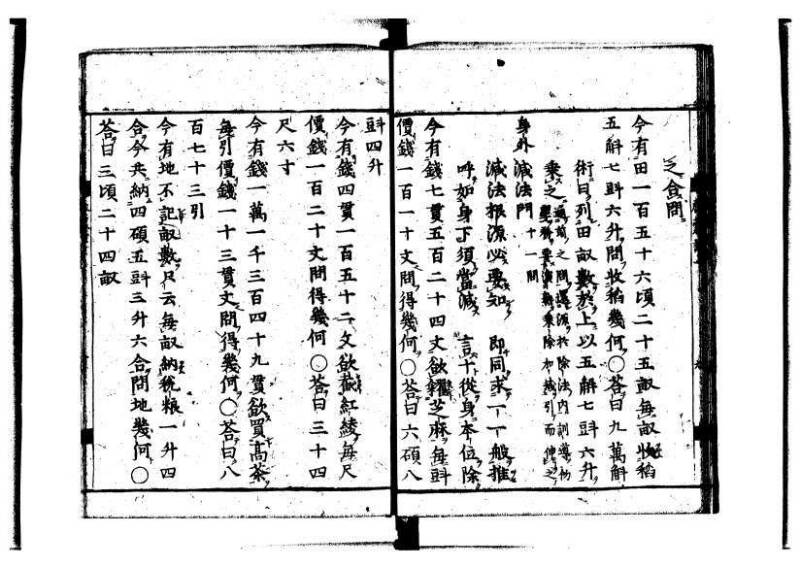 之合問
今有田一百五十六頃二十五畝每畝收稻
五斛七㪷六升問收稻幾何〇荅曰九萬斛
術曰列田畝數於上以五斛七㪷六升
乘之
身外減法門 十一問
減法根源必要知 即同求一一般推
呼如身下須當減 言十從身本位除
今有錢七貫五百二十四文欲糴芝麻每㪷
價錢一百一十文問得幾何〇荅曰六碩八
㪷四升
今有錢四貫一百五十二文欲裁紅綾每尺
價錢一百二十文問得幾何〇荅曰三十四
尺六寸
今有錢一萬一千三百四十九貫欲買高茶
每引價錢一十三貫文問得幾何〇荅曰八
百七十三引
今有地不記畝數只云每畝納稅粮一升四
合今共納四碩五㪷三升六合問地幾何〇
荅曰三頃二十四畝